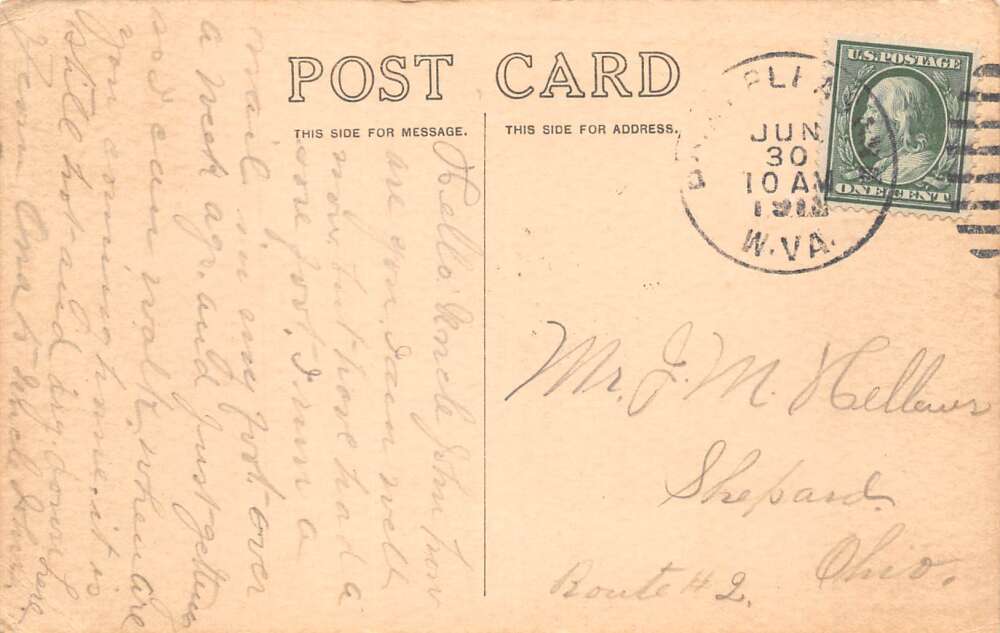 POST CARD
THIS SIDE FOR MESSAGE.
THIS SIDE FOR ADDRESS.
U.S. POSTAGE
ONE CENT
JUN
30
10 AM
W. VA.
Hello Uncle John how
are you. I am well
now, but have had a
sore foot, I run a
nail in my foot over
a week ago. and just getting
so I can walk, when are
you coming home. it is
still hot and dry down here
From to Uncle John.
Mr. J. M. Hellows
Shepard
Ohio.
Route # 2.